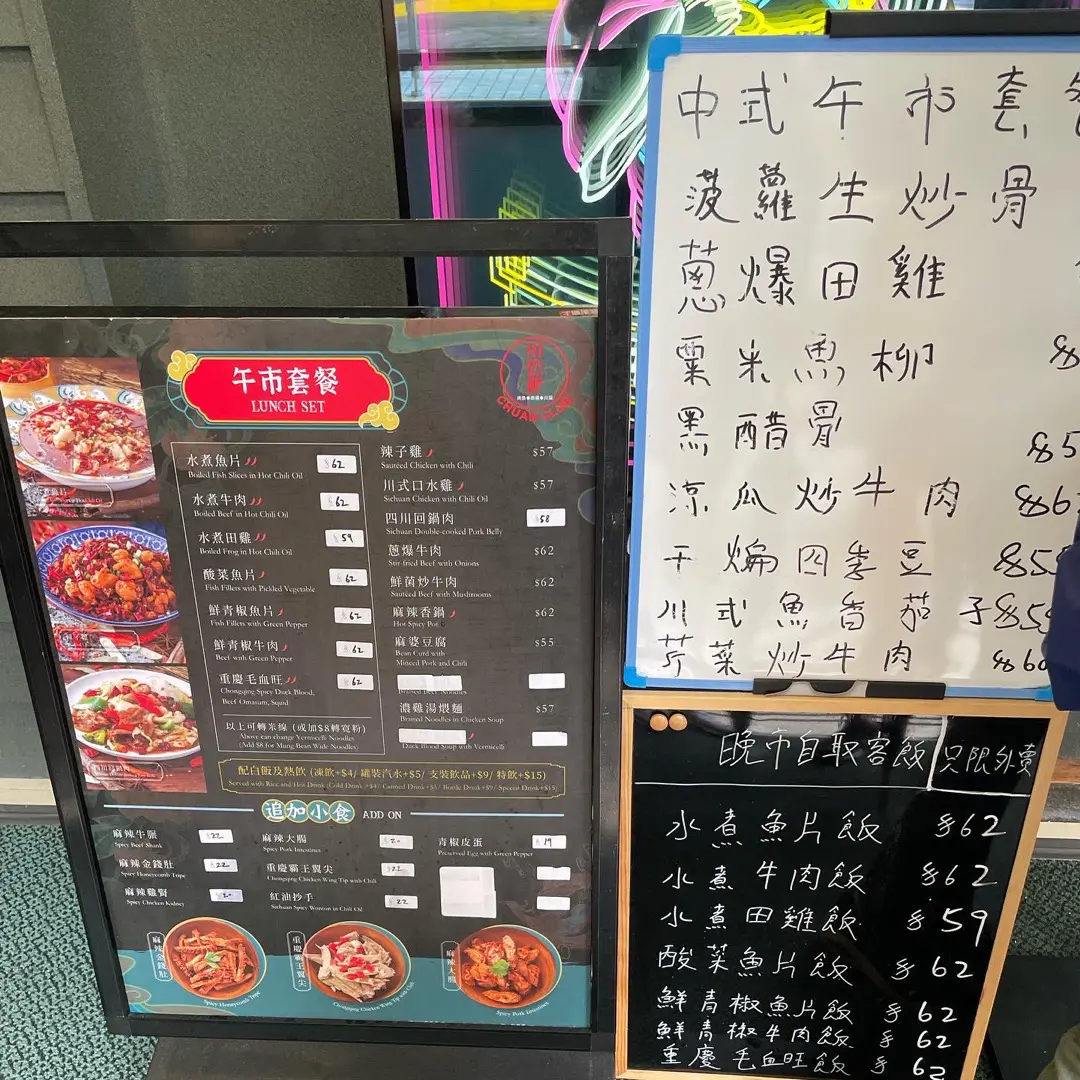 午市套餐
LUNCH SET
CHUAN
水煮魚片 $62
Boiled Fish Slices in Hot Chili Oil
水煮牛肉 $62
Boiled Beef in Hot Chili Oil
水煮田雞 $59
Boiled Frog in Hot Chili Oil
酸菜魚片 $62
Fish Fillets with Pickled Vegetable
鮮青椒魚片 $62
Fish Fillets with Green Pepper
鮮青椒牛肉 $62
Beef with Green Pepper
重慶毛血旺 $62
Chongqing Spicy Duck Blood,
Beef Omasum, Squid
以上可轉米線 (或加$8轉寬粉)
Above can change Vermicelli Noodles
(Add $8 for Mung Bean Wide Noodles)
辣子雞 $57
Sautéed Chicken with Chili
川式口水雞 $57
Sichuan Chicken with Chili Oil
四川回鍋肉 $58
Sichuan Double-cooked Pork Belly
蔥爆牛肉 $62
Stir-fried Beef with Onions
鮮菌炒牛肉 $62
Sautéed Beef with Mushrooms
麻辣香鍋 $62
Hot Spicy Pot
麻婆豆腐 $55
Bean Curd with
Minced Pork and Chili
Braised Beef Noodles
濃雞湯煨麵 $57
Braised Noodles in Chicken Soup
Duck Blood Soup with Vermicelli
配白飯及熱飲 (凍飲+$4/ 罐裝汽水+$5/ 支裝飲品+$9/ 特飲+$15)
Served with Rice and Hot Drink (Cold Drink +$4/ Canned Drink +$5/ Bottle Drink +$9/ Special Drink +$15)
追加小食 ADD ON
麻辣牛𦟌 $22
Spicy Beef Shank
麻辣金錢肚 $22
Spicy Honeycomb Tripe
麻辣雞腎 $20
Spicy Chicken Kidney
麻辣大腸 $20
Spicy Pork Intestines
重慶霸王翼尖 $22
Chongqing Chicken Wing Tip with Chili
紅油抄手 $22
Sichuan Spicy Wonton in Chili Oil
青椒皮蛋 $19
Preserved Egg with Green Pepper
麻辣金錢肚
Spicy Honeycomb Tripe
重慶霸王翼尖
Chongqing Chicken Wing Tip with Chili
麻辣大腸
Spicy Pork Intestines
中式午市套餐
菠蘿生炒骨
蔥爆田雞
粟米魚柳
黑醋骨
涼瓜炒牛肉
干煸四季豆
川式魚香茄子
芹菜炒牛肉 $60
晚市自取客飯 只限外賣
水煮魚片飯 $62
水煮牛肉飯 $62
水煮田雞飯 $59
酸菜魚片飯 $62
鮮青椒魚片飯 $62
鮮青椒牛肉飯 $62
重慶毛血旺飯 $62